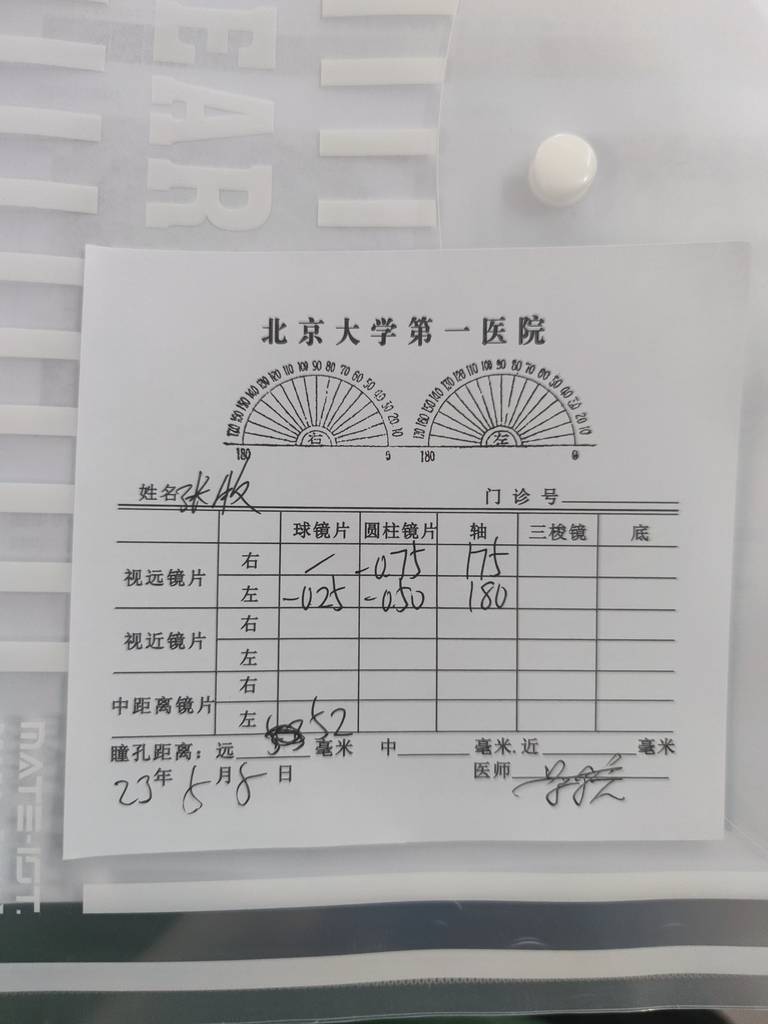 EAR
北京大学第一医院
170 160 150 140 130 120 110 100 90 80 70 60 50 40 30 20 10 170 160 150 140 130 120 110 100 90 80 70 60 50 40 30 20 10
右 左
180 0 180 0
姓名 张 门诊号
球镜片 圆柱镜片 轴 三梭镜 底
视远镜片 右 / -0.75 175
左 -0.25 -0.50 180
视近镜片 右
左
中距离镜片 右
左
瞳孔距离：远 52 毫米 中 毫米. 近 毫米
23年5月8日 医师
MATE-IST.